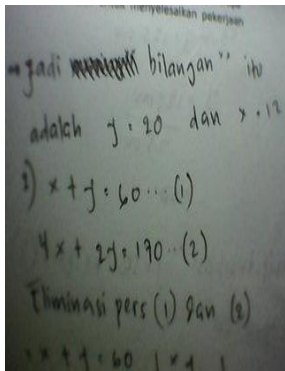 menyelesaikan pekerjaan
→ Jadi bilangan" itu
adalah y = 20 dan x = 12
2) x + y = 60 ... (1)
4x + 2y = 170 .. (2)
Eliminasi pers (1) dan (2)
x + y = 60 | x 4 |